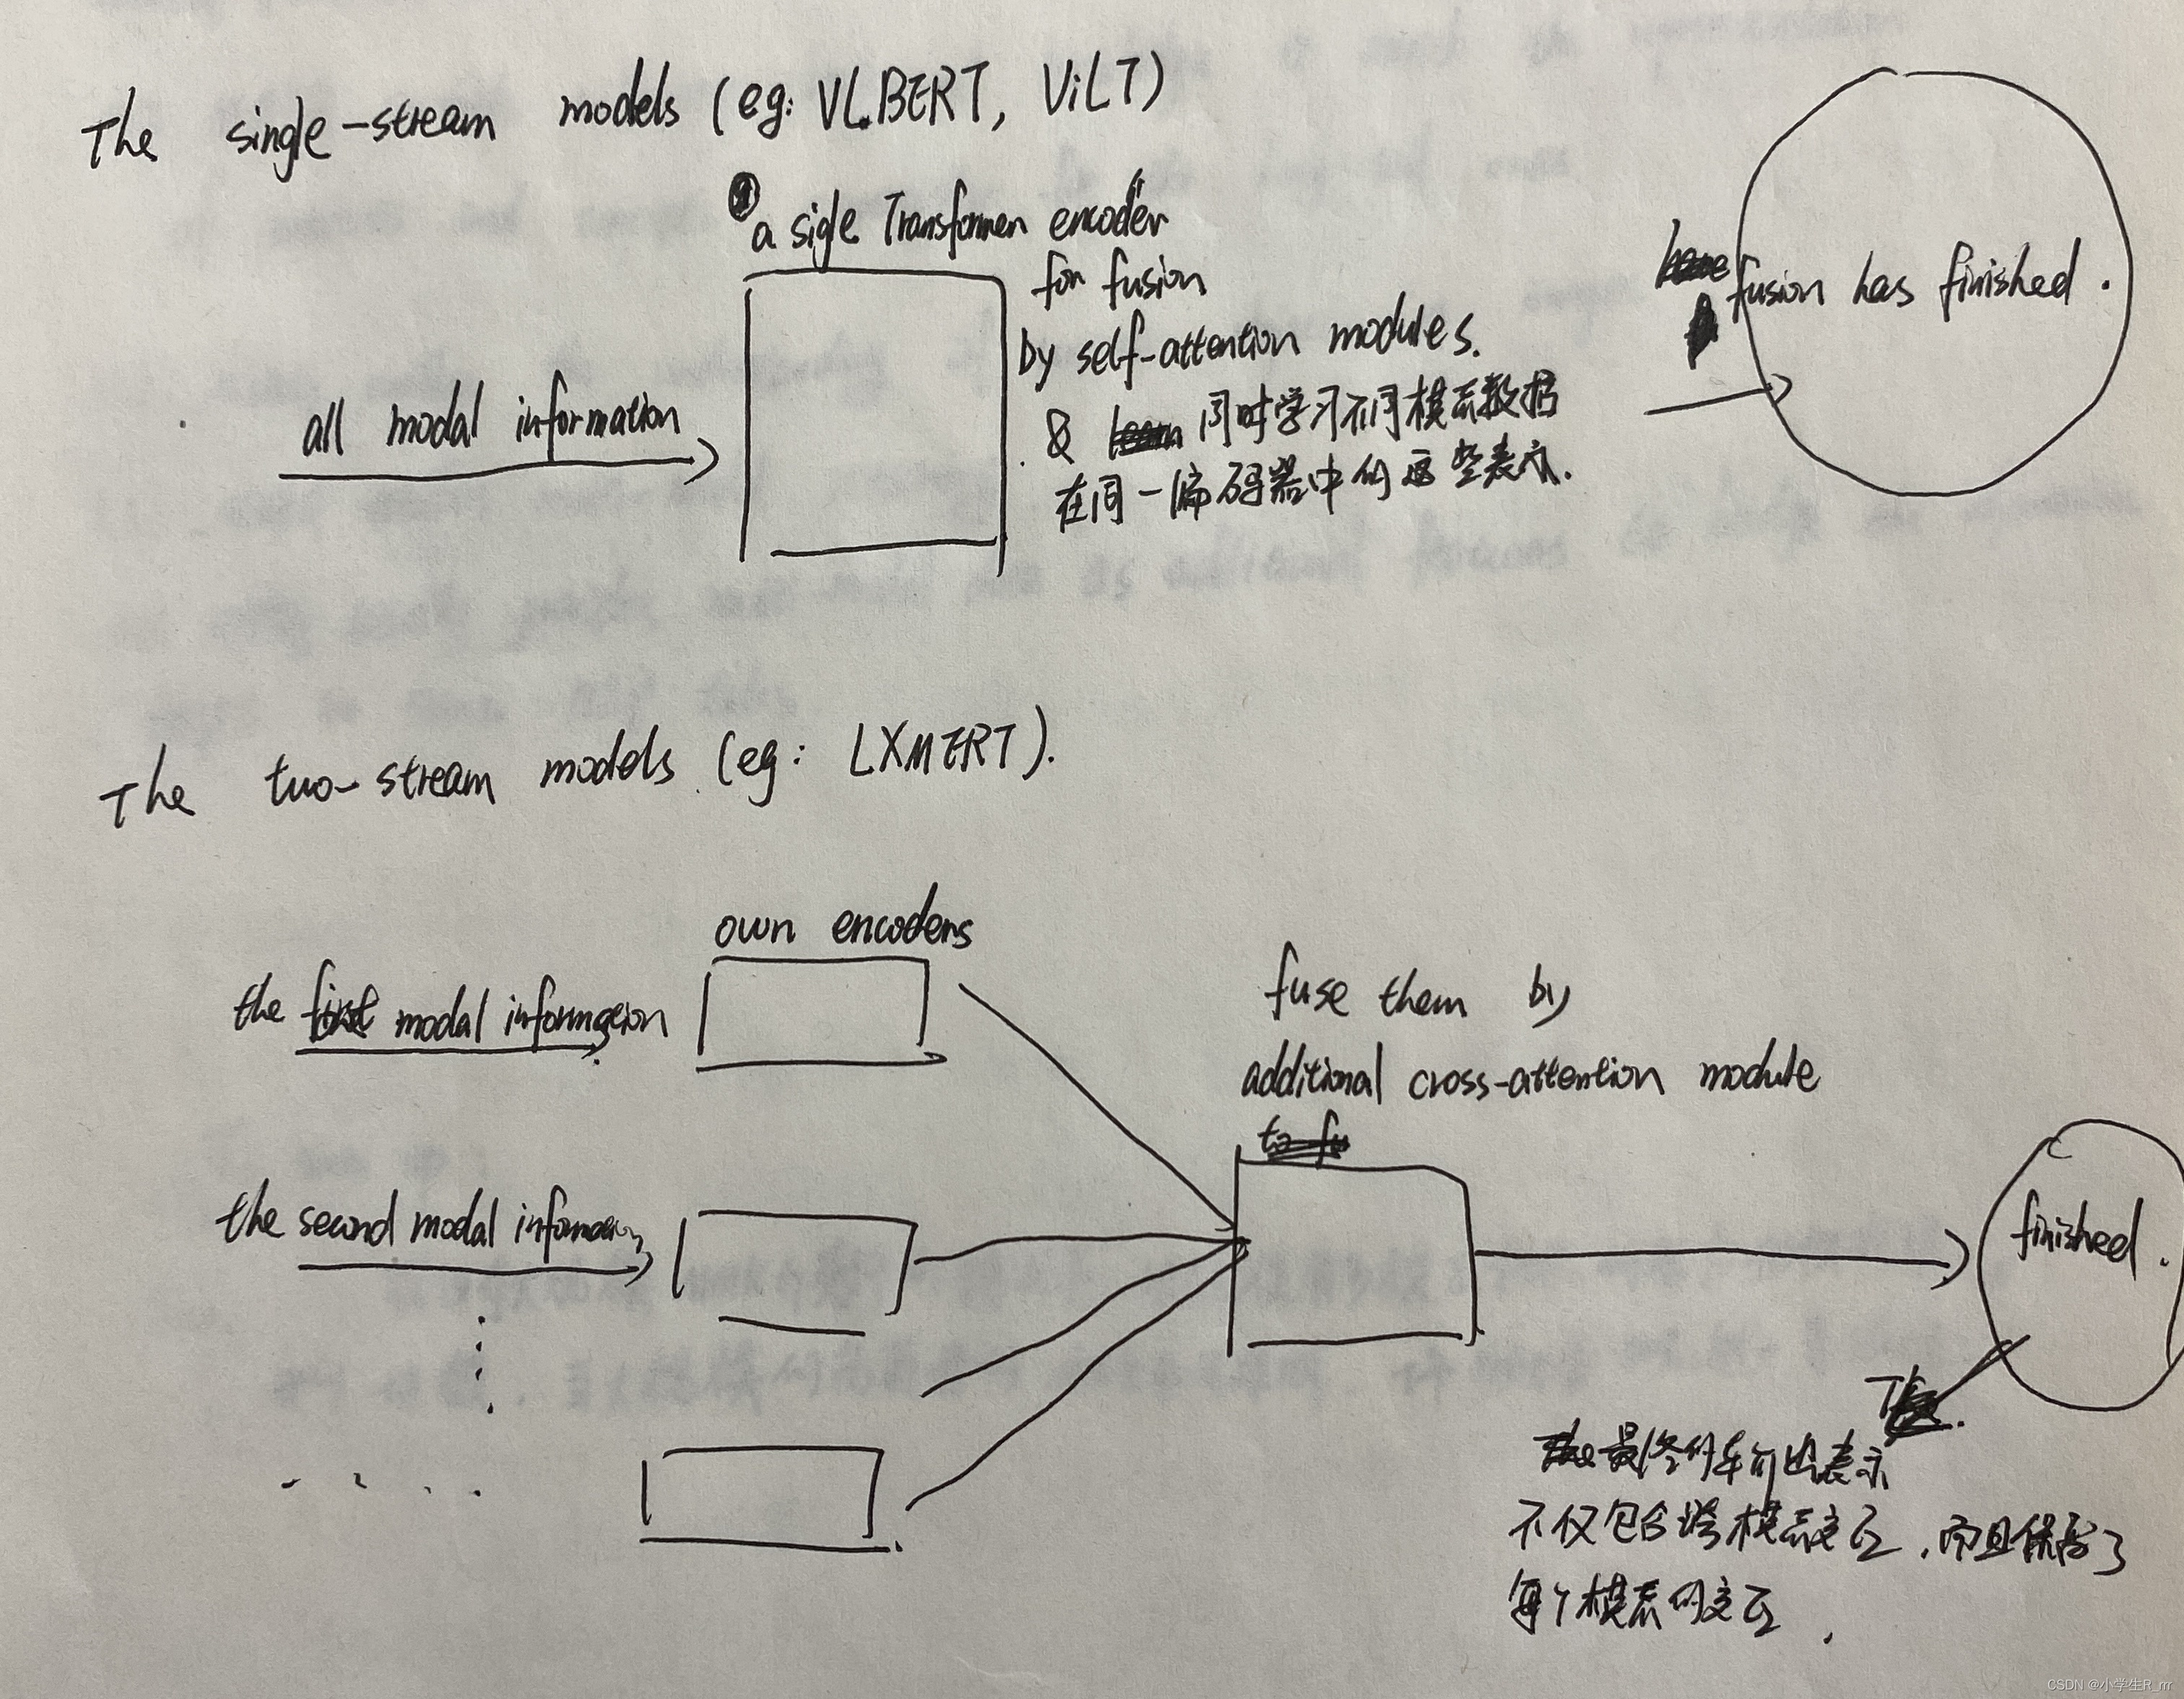 The single-stream models (eg: VL.BERT, ViLT)
a sigle Transformer encoder
for fusion
by self-attention modules.
& 同时学习不同模态数据
在同一编码器中的这些表示.
all modal information
fusion has finished.
The two-stream models (eg: LXMERT).
own encoders
the first modal information
fuse them by
additional cross-attention module
the second modal information
finished.
最终的输出表示
不仅包含跨模态交互,而且保留了
每个模态的交互
CSDN @小学生R_m